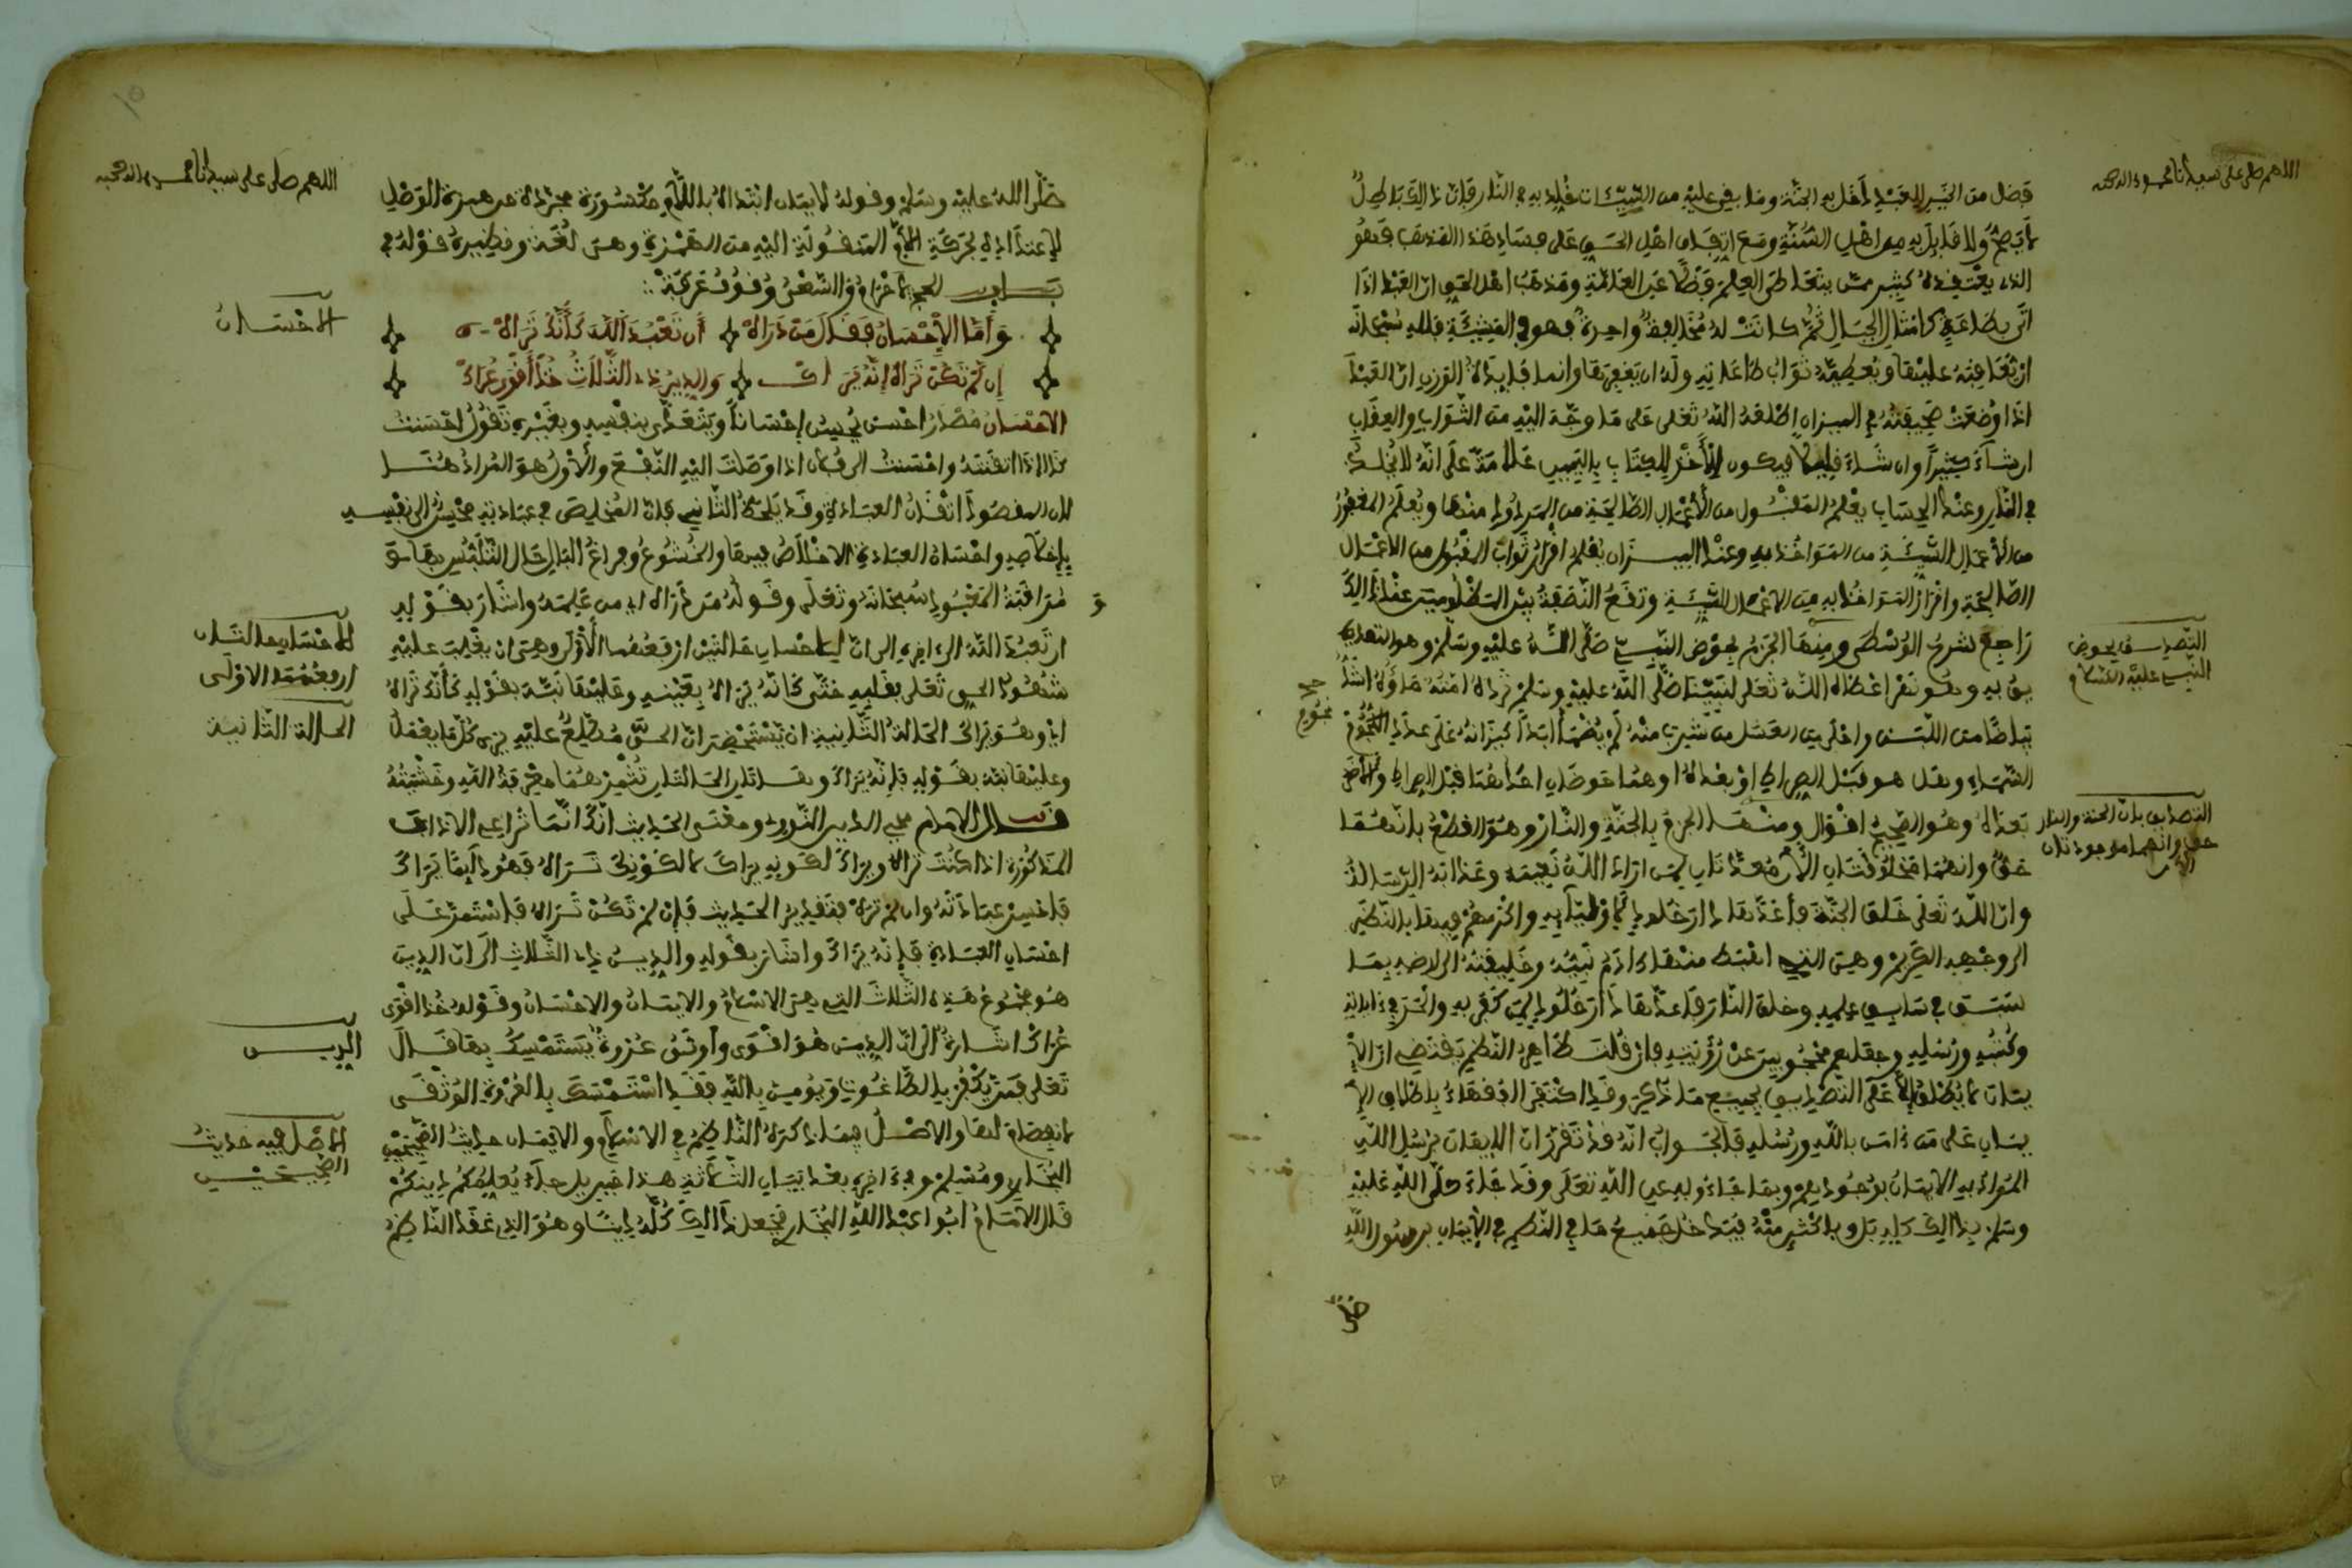 اللهم صل على سيدنا محمد وءاله وصحبه
فضل من الخير للعبد دخل به الجنة وما بقي عليه من السيئات خلد به في النار فإن ذالك باطل
لا يصح ولا قايل به من اهل السنة ومع اتفاق اهل الحق على فساد هذا المذهب فهو
الذي يعتقده كثير ممن يتعاطى العلم فضلا عن العامة ومذهب اهل الحق ان العبد اذا
اتى بطاعة كامثال الجبال ثم كانت له مخالفة واحدة فهو في المشيئة فلله سبحانه
ان يعاقبه عليها ويعطيه ثواب طاعاته وله ان يغفرها وانما فايدة الوزن ان العبد
اذا وضعت صحيفته في الميزان اطلعه الله تعلى على ما وجه اليه من الثواب والعقاب
ان شاء كثيرا وان شاء قليلا فيكون الأخذ للكتاب باليمين علامة على انه لا يخلد
في النار وعند الحساب يعلم المقبول من الأعمال الصالحة من المردود منها ويعلم المغفور
من الأعمال السيئة من المواخذ به وعند الميزان يعلم افراز ثواب المقبول من الاعمال
الصالحة وافراز المواخذ به من الاعمال السيئة وتقع النصفة بين المظلومين عند ذالك
راجع لشرح الوسطى ومنها الجزم بحوض النبي صلى الله عليه وسلم وهو التصديق
التصديق بحوض
النبي عليه السلام
به وهو نهر اعطاه الله تعلى لنبينا صلى الله عليه وسلم ترده امته ماؤه اشد
بياضا من اللبن واحلى من العسل من شرب منه لم يظمأ ابدا كيزانه على عدد النجوم
نجوم
السماء وهل هو قبل الصراط او بعده او هما حوضان احدهما قبل الصراط والاخر
بعده وهو الصحيح اقوال ومنها الجزم بالجنة والنار وهو القطع بانهما
التصديق بان الجنة والنار
حق وانهما موجودتان
الآن
حق وانهما مخلوقتان الأن معدتان لمن اراد الله نعيمه وعذابه الرسالة
وان الله تعلى خلق الجنة فأعدها دار خلود لأوليآيه واكرمهم فيها بالنظر
الى وجهه الكريم وهي التي اهبط منها ءادم نبيه وخليفته الى ارضه بما
سبق في سابق علمه وخلق النار فاعدها دار خلود لمن كفر به والحد في ءاياته
وكتبه ورسله وجعلهم محجوبين عن رؤيته فإن قلت ظاهر النظم يقتضي ان الإ
يمان لا يطلق إلا على التصديق بجميع ما ذكر وقد اكتفى الفقهاء باطلاق الإ
يمان على من ءامن بالله ورسله فالجواب انه قد تقرر ان الايمان برسل الله
المراد به الايمان بوجودهم وبما جاءوا به عن الله تعلى وقد جاء صلى الله عليه
وسلم بذالك كله بل وباكثر منه فيدخل جميع ما في النظم في الإيمان برسول الله
صلى
اللهم صل على سيدنا محمد وءاله وصحبه
صلى الله عليه وسلم وقوله لايمان ابتداؤه باللام مكسورة مجردة من همزة الوصل
للاعتداد بحركة اللام المنقولة اليه من الهمزة وهي لغة ونظيره قوله في
باب الحج لاحرام والسعي وقوف عرفة
الاحسان
وأما الإحسان فقال من دراه أن تعبد الله كأنك تراه
إن لم تكن تراه إنه يراك والدين ذي الثلاث خذ أقوى عراك
الاحسان مصدر احسن يحسن إحسانا ويتعدى بنفسه وبغيره تقول احسنت
كذا اذا اتقنته واحسنت الى فلان اذا وصلت اليه النفع والأول هو المراد هنا
لان المقصود اتقان العبادة وقد يلحظ الثاني بان المخلص في عبادته محسن الى نفسه
بإخلاصه واحسان العبادة الاخلاص فيها والخشوع وفراغ البال حال التلبس بها و
مراقبة المعبود سبحانه وتعلى وقوله من دراه اي من علمه واشار بقوله
الاحسان حالتان
ارفعهما الاولى
ان تعبد الله الى ءاخره الى ان للاحسان حالتين ارفعهما الأولى وهي ان يغلب عليه
شهود الحق تعلى بقلبه حتى كانه يراه بعينه وعليها نبه بقوله كأنك تراه
الحالة الثانية
اي وهو يراك الحالة الثانية ان يستحضر ان الحق مطلع عليه يرى كل ما يفعل
وعليها نبه بقوله فإنه يراك وهاتان الحالتان تثمرهما معرفة الله وخشيته
قال الامام محيي الدين النووي ومعنى الحديث انك انما تراعي الاداب
المذكورة اذا كنت تراه ويراك لكونه يراك لا لكونك تراه فهو دايما يراك
فاحسن عبادته وان لم تره فتقدير الحديث فإن لم تكن تراه فاستمر على
احسان العبادة فإنه يراك واشار بقوله والدين ذي الثلاث الى ان الدين
هو مجموع هذه الثلاث التي هي الاسلام والايمان والاحسان وقوله خذ اقوى
الدين
عراك اشارة الى ان الدين هو اقوى واوثق عروة يستمسك بها قال
تعلى فمن يكفر بالطاغوت ويومن بالله فقد استمسك بالعروة الوثقى
الاصل فيه حديث
الصحيحين
لا انفصام لها والاصل فيما ذكره الناظم في الاسلام والايمان حديث الصحيحين
البخاري ومسلم وفي ءاخره بعد بيان الثلاثة هذا جبريل جاء يعلمكم دينكم
قال الامام ابوا عبد الله البخاري فجعل ذالك كله دينا وهو الذي عقد الناظم